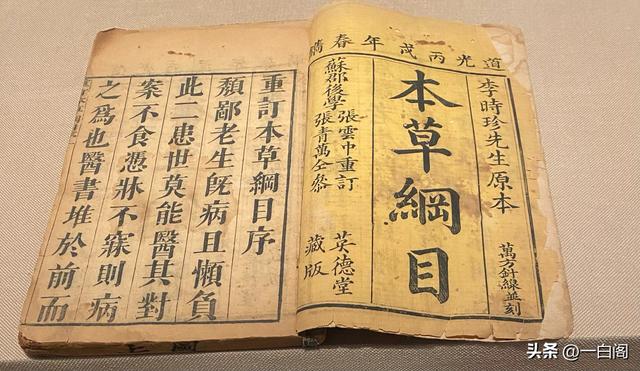 道光丙戌年春
李時珍先生原本
萬方針線並刻
本草綱目
蘇郡後學
張雲中重訂
張青萬仝叅
英德堂
藏版
重訂本草綱目序
頽鄙老生旣病且懶負
此二患世莫能醫其對
案不食憑牀不寐則病
之爲也醫書堆於前而
头条 @一白阁